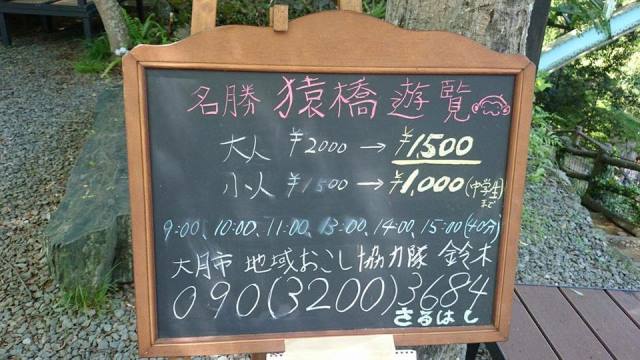 名勝 猿橋 遊覧
大人 ¥2000 → ¥1,500
小人 ¥1500 → ¥1,000 (中学生まで)
9:00、10:00、11:00、13:00、14:00、15:00 (40分)
大月市 地域おこし協力隊 鈴木
090(3200)3684
さるはし